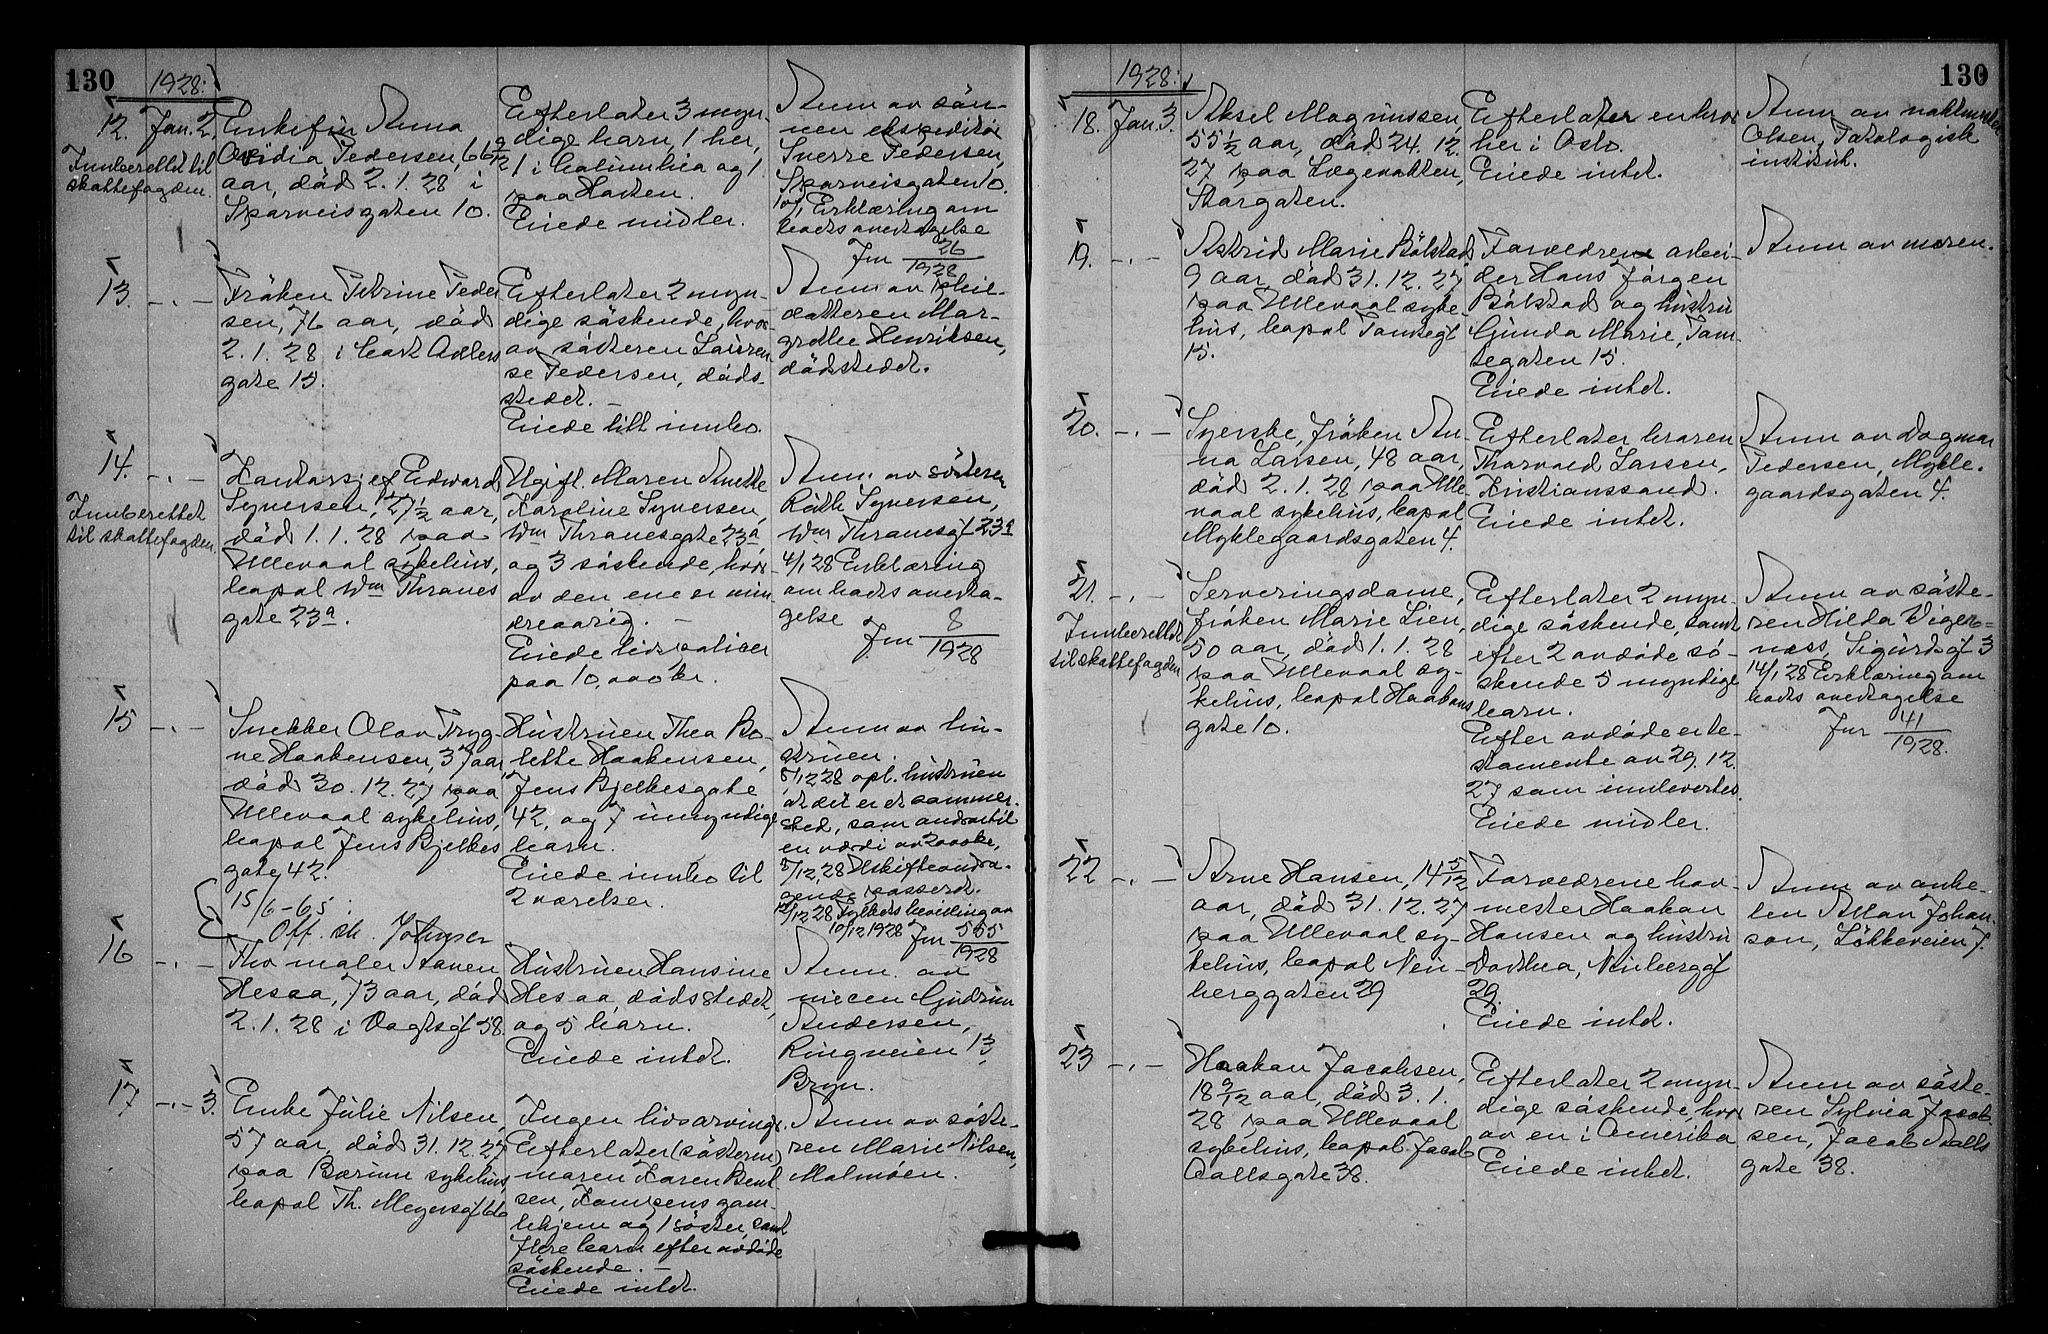 130
1928:
12. Jan. 2.
Innberettet til
skattefogden.
Enkefru Anna
Ovidia Pedersen, 66 9/12
aar, död 2.1.28 i
Sparveisgaten 10.
Efterlater 3 myn-
dige barn, 1 her,
1 i Columbia og 1
paa Hadten.
Eiede midler.
Anm. av sön-
nen ekspeditör
Sverre Pedersen,
Sparveisgaten 10.
10/1 Erklæring om
boets overtagelse
Jnr 26/1928
13. -.-
Fröken Petrine Peder
sen, 76 aar, död
2.1.28 i Cort Adelers
gate 15.
Efterlater 2 myn-
dige söskende, hvor-
av sösteren Lauren-
se Pedersen, döds-
stedet. -
Eiede litt innbo.
Anm. av pleie-
datteren Mar-
grethe Henriksen,
dödsstedet.
14. -.-
Innberettet
til skattefogden.
Kontorsjef Edward
Syversen, 27 1/2 aar,
död 1.1.28 paa
Ullevaal sykehus,
bopal Wm Thranes
gate 23a.
Ugift. Moren Anette
Karoline Syversen,
Wm Thranesgate 23a
og 3 söskende, hvor-
av den ene er min-
dreaarig. -
Eiede livspoliser
paa 10,000 kr.
Anm. av sösteren
Ruth Syversen,
Wm Thranesgt 23a
4/1 28 Erklæring
om boets overta-
gelse
Jnr 8/1928
15 -.-
Snekker Olav Tryg-
ve Haakensen, 37 aar,
död 30.12.27 paa
Ullevaal sykehus,
bopal Jens Bjelkes
gate 42.
15/6-65:
Off. sk. Johnsen
Hustruen Thea Bo-
lette Haakensen,
Jens Bjelkesgate
42, og 7 umyndige
barn.
Eiede innbo til
2 værelser.
Anm. av hu-
struen.
5/12 28 opl. hustruen
at det er et sommer-
sted, som andrar til
en værdi av 2000 kr.
5/12 28 Uskifteandra-
gende passert.
12/12 28 Fylkets bevilling av
10/12 1928 Jnr 565/1928
16 -.-
Fhv maler Hanen
Hesaa, 73 aar, död
2.1.28 i Vogtsgt 58.
Hustruen Hansine
Hesaa, dödsstedet,
og 5 barn.
Eiede intet.
Anm. av
niecen Gudrun
Andersen,
Ringveien 13,
Bryn.
17 -.- 3.
Enke Julie Nilsen,
57 aar, död 31.12.27
paa Bærum sykehus,
bopal Th. Meyersgt 66
Ingen livsarvinger.
Efterlater (sösteren)
moren Karen Bent
sen, Kampens gam-
lehjem og 1 söster, samt
flere barn efter avdöde
söskende. -
Eiede intet.
Anm. av söste-
ren Marie Nilsen,
Malmöen.
130
1928:
18. Jan. 3.
Aksel Magnussen,
55 1/2 aar, död 24.12.
27 paa Lægevakten,
Storgaten.
Efterlater en bror
her i Oslo.
Eiede intet.
Anm. av
Olsen, Patologisk
institut.
19. -.-
Astrid Marie Bölstad
9 aar, död 31.12.27
paa Ullevaal syke-
hus, bopal Tomtegt
15.
Forældrene arbei-
der Hans Jörgen
Bölstad og hustru
Gunda Marie, Tom-
tegaten 15.
Eiede intet.
Anm. av moren.
20. -.-
Syerske, fröken An-
na Larsen, 48 aar,
död 2.1.28 paa Ulle-
vaal sykehus, bopal
Myklegaardsgaten 4.
Efterlater broren
Thorvald Larsen,
Kristianssand.
Eiede intet.
Anm. av Dagmar
Pedersen, Mykle-
gaardsgaten 4.
21. -.-
Innberettet
til skattefogden
Serveringsdame,
fröken Marie Lien,
50 aar, död 1.1.28
paa Ullevaal sy-
kehus, bopal Haakons
gate 10.
Efterlater 2 myn-
dige söskende, samt
efter 2 avdöde sö-
skende 5 myndige
barn.
Efter avdöde er te-
stamente av 29.12.
27 som innlevertes.
Eiede midler.
Anm. av söste-
ren Hilda Viger-
næss, Sigurdsgt 3
14/1 28 Erklæring om
boets overtagelse
Jnr 41/1928.
22 -.-
Arne Hansen, 14 5/12
aar, död 31.12.27
paa Ullevaal sy-
kehus, bopal Neu-
berggaten 29
Forældrene hav-
mester Haakon
Hansen og hustru
Dorthea, Neuberggt
29.
Eiede intet.
Anm. av onke-
len Allan Johan
son, Lökkeveien 7.
23 -.-
Haakon Jacobsen,
18 9/12 aar, död 3.1.
28 paa Ullevaal
sykehus, bopal Jacob
Aallsgate 38.
Efterlater 2 myn-
dige söskende, hvor
av en i Amerika
Eiede intet.
Anm. av söste-
ren Sylvia Jacob-
sen, Jacob Aalls
gate 38.